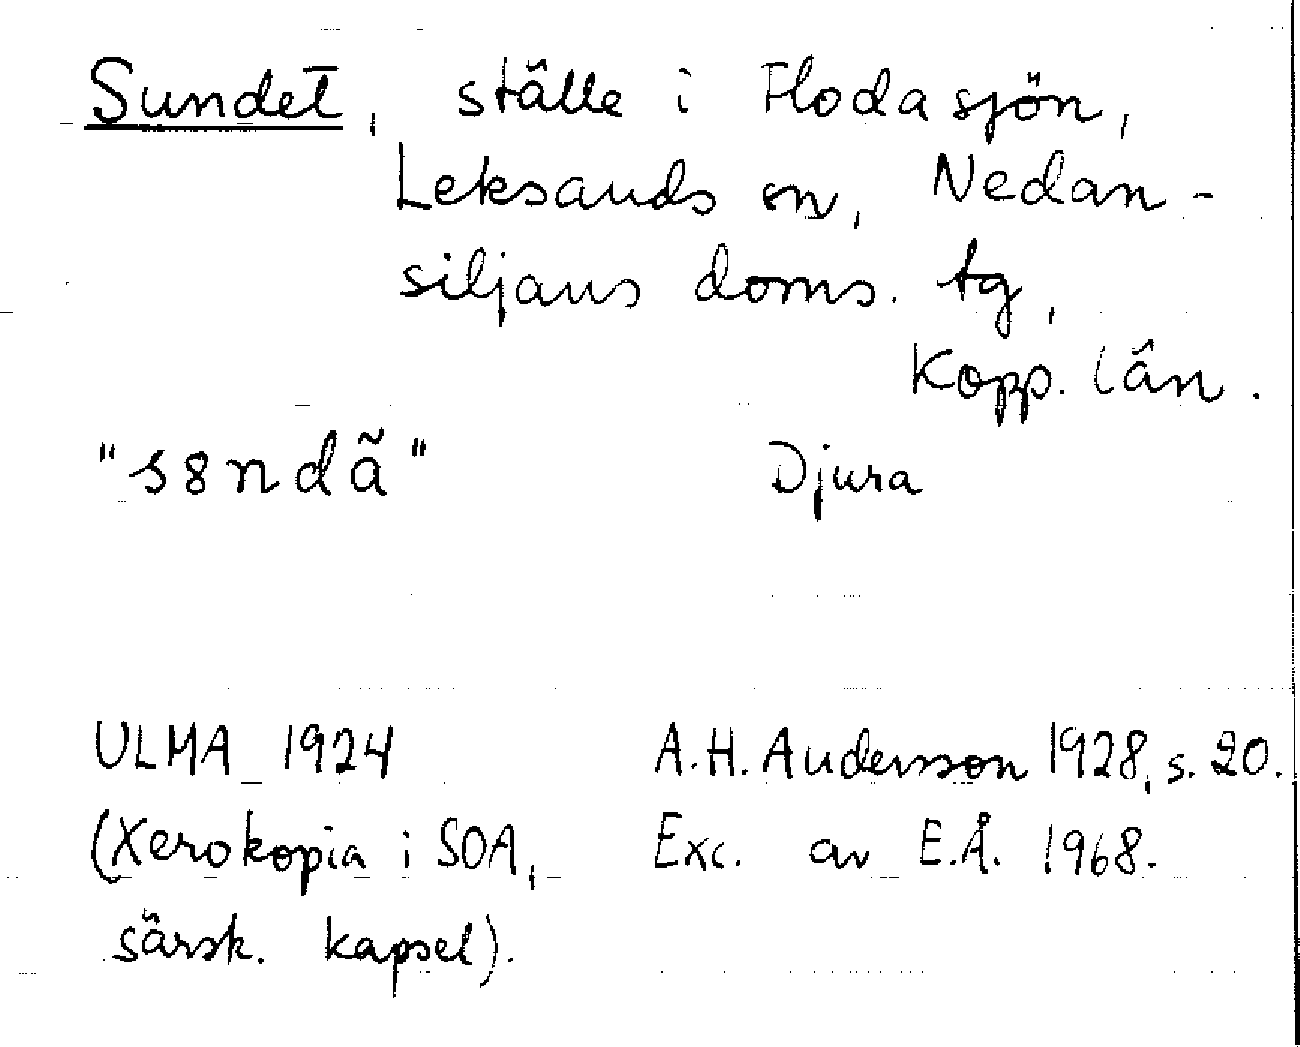 Sundet, ställe i Flodasjön,
Leksands sn, Nedan-
siljans doms. tg,
Kopp. län.
"s8ndã" Djura
ULMA 1924 A.H. Andersson 1928, s. 20.
(Xerokopia i SOA, Exc. av E.Å. 1968.
särsk. kapsel).